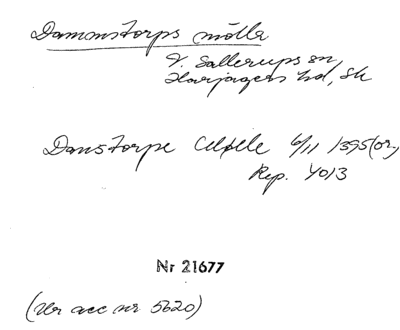 Dammstorps mölla
V. Sallerups sn,
Harjagers hd, Sk
Danstorpe 6/11 1395 (or.)
Rep. 4013
Nr 21677
(Ur acc nr 5620)